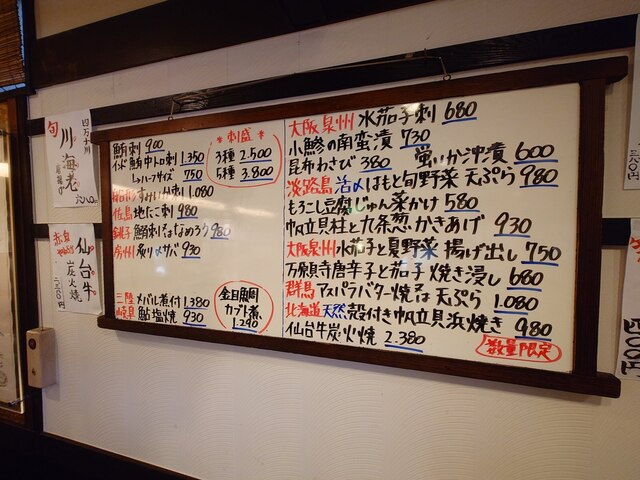 鮪刺 900
インド鮪中トロ刺 1.350
ハーフサイズ 750
刺 1.080
佐島 地たこ刺 980
銚子 鰯刺 なめろう 980
房州 炙り〆サバ 930
三陸 メバル煮付 1.380
岐阜 鮎塩焼 930
＊刺盛＊
3種 2.500
5種 3.800
金目鯛
カブト煮
1.290
大阪泉州 水茄子刺 680
小鯵の南蛮漬 730
昆布わさび 380 蛍いか沖漬 600
淡路島 活〆はもと旬野菜 天ぷら 980
もろこし豆腐じゅん菜かけ 580
帆立貝柱と九条葱 かきあげ 930
大阪泉州 水茄子と夏野菜 揚げ出し 750
万願寺唐辛子と茄子 焼き浸し 680
群馬 アスパラバター焼 又は 天ぷら 1.080
北海道 天然 殻付き帆立貝浜焼き 980
仙台牛炭火焼 2.380
数量限定
旬
四万十川
川海老
赤身
仙台牛
炭火焼